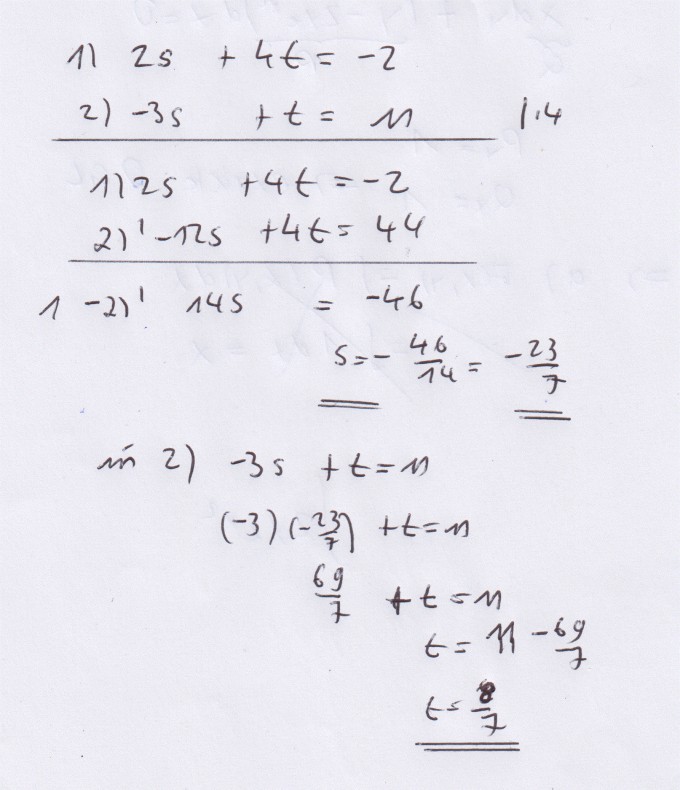 1) 2s + 4t = -2
2) -3s + t = 11 |·4
1) 2s + 4t = -2
2)' -12s + 4t = 44
1 - 2)' 14s = -46
s = - 46/14 = -23/7
in 2) -3s + t = 11
(-3) (-23/7) + t = 11
69/7 + t = 11
t = 11 - 69/7
t = 8/7